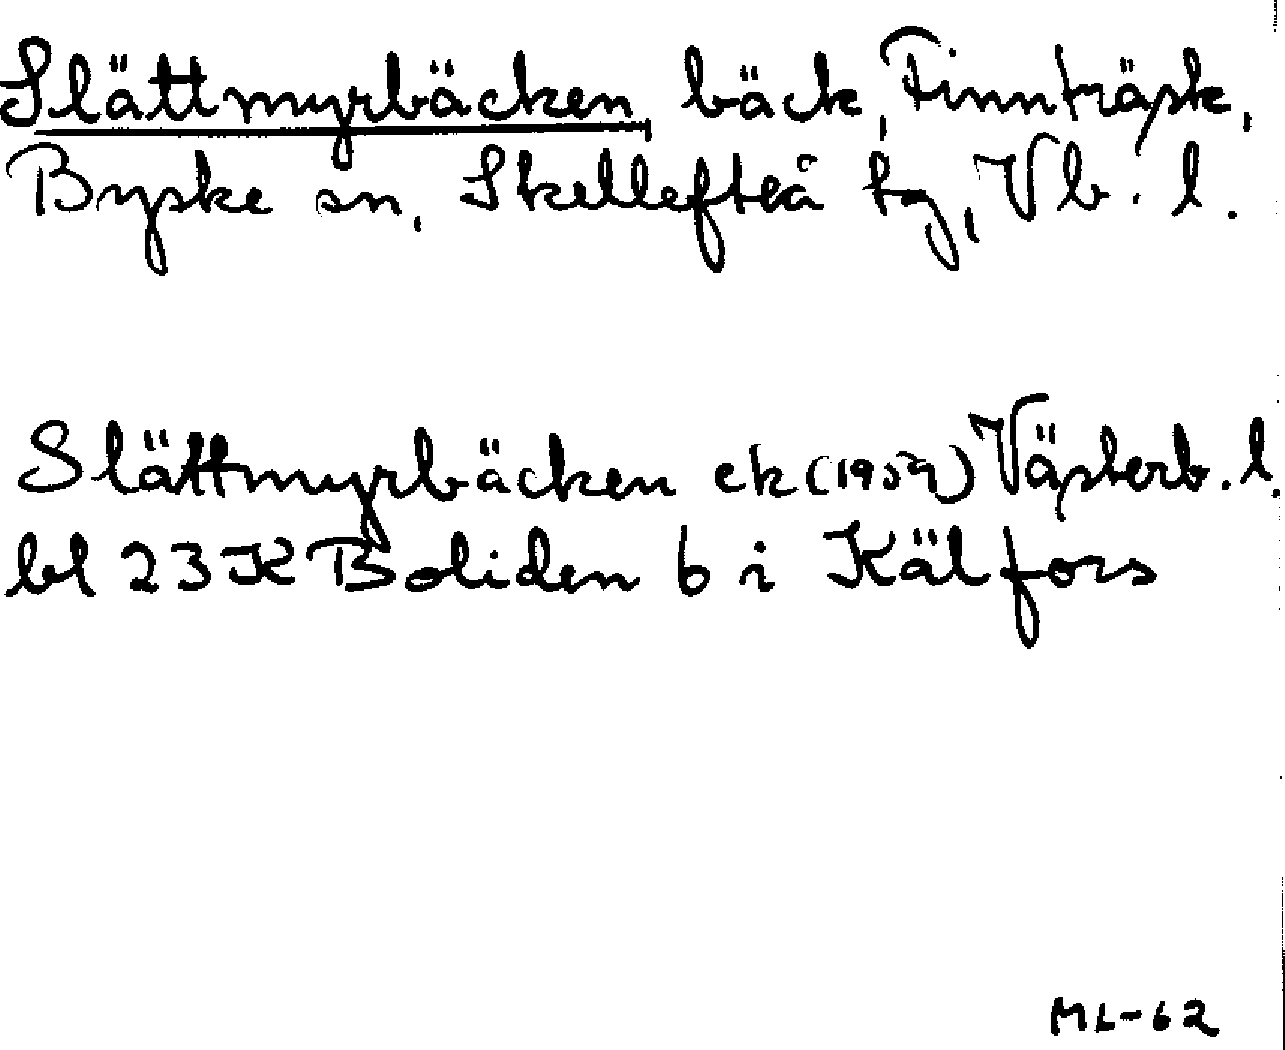 Slättmyrbäcken, bäck, Finnträsk,
Byske sn, Skellefteå tg, Vb. l.
Slättmyrbäcken ek (1959) Västerb. l.
bl 23 K Boliden 6 i Kälfors
ML-62